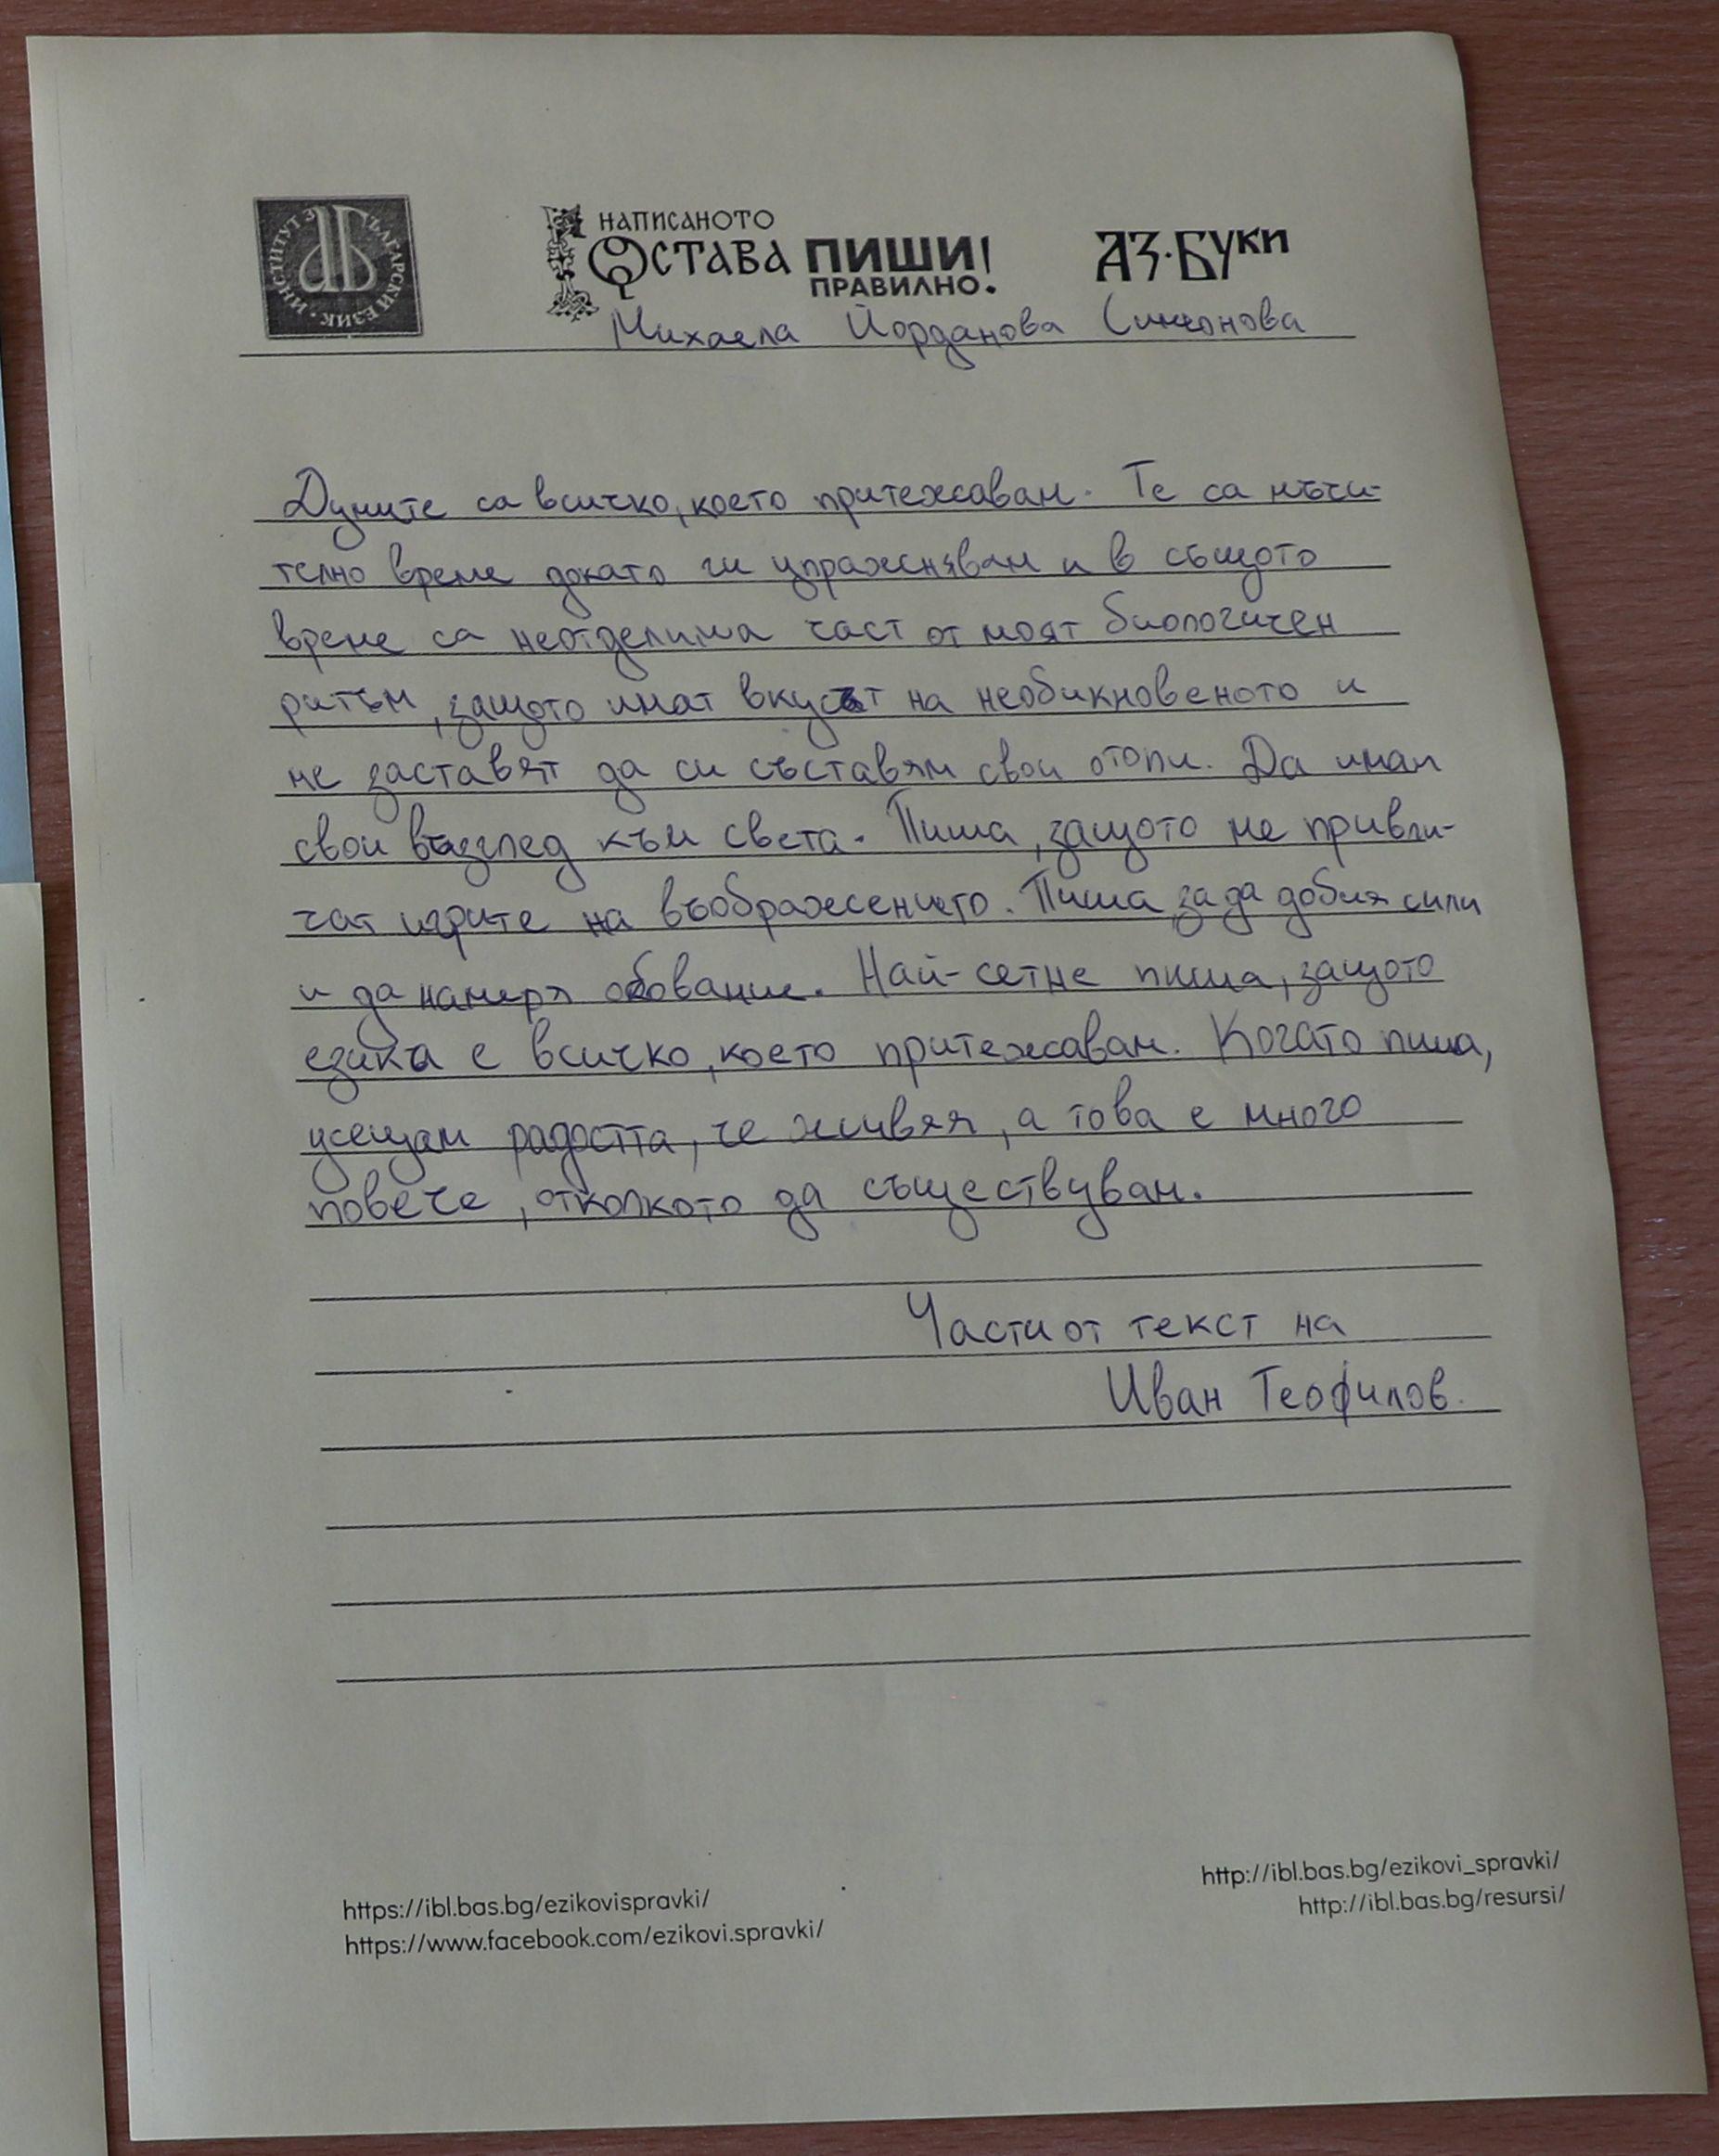 ИНСТИТУТ ЗА БЪЛГАРСКИ ЕЗИК
НАПИСАНОТО
ОСТАВА ПИШИ!
ПРАВИЛНО.
АЗ·БУКИ
Михаела Йорданова Симеонова
Думите са всичко, което притежавам. Те са мъчи-
телно време докато ги упражнявам и в същото
време са неотделима част от моят биологичен
ритъм, защото имат вкусът на необикновеното и
ме заставят да си съставям свои отопи. Да имам
свои възглед към света. Пиша, защото ме привли-
чат игрите на въображението. Пиша, за да добия сили
и да намеря обование. Най-сетне пиша, защото
езика е всичко, което притежавам. Когато пиша,
усещам радостта, че живея, а това е много
повече, отколкото да съществувам.
Части от текст на
Иван Теофилов.
https://ibl.bas.bg/ezikovispravki/
https://www.facebook.com/ezikovi.spravki/
http://ibl.bas.bg/ezikovi_spravki/
http://ibl.bas.bg/resursi/